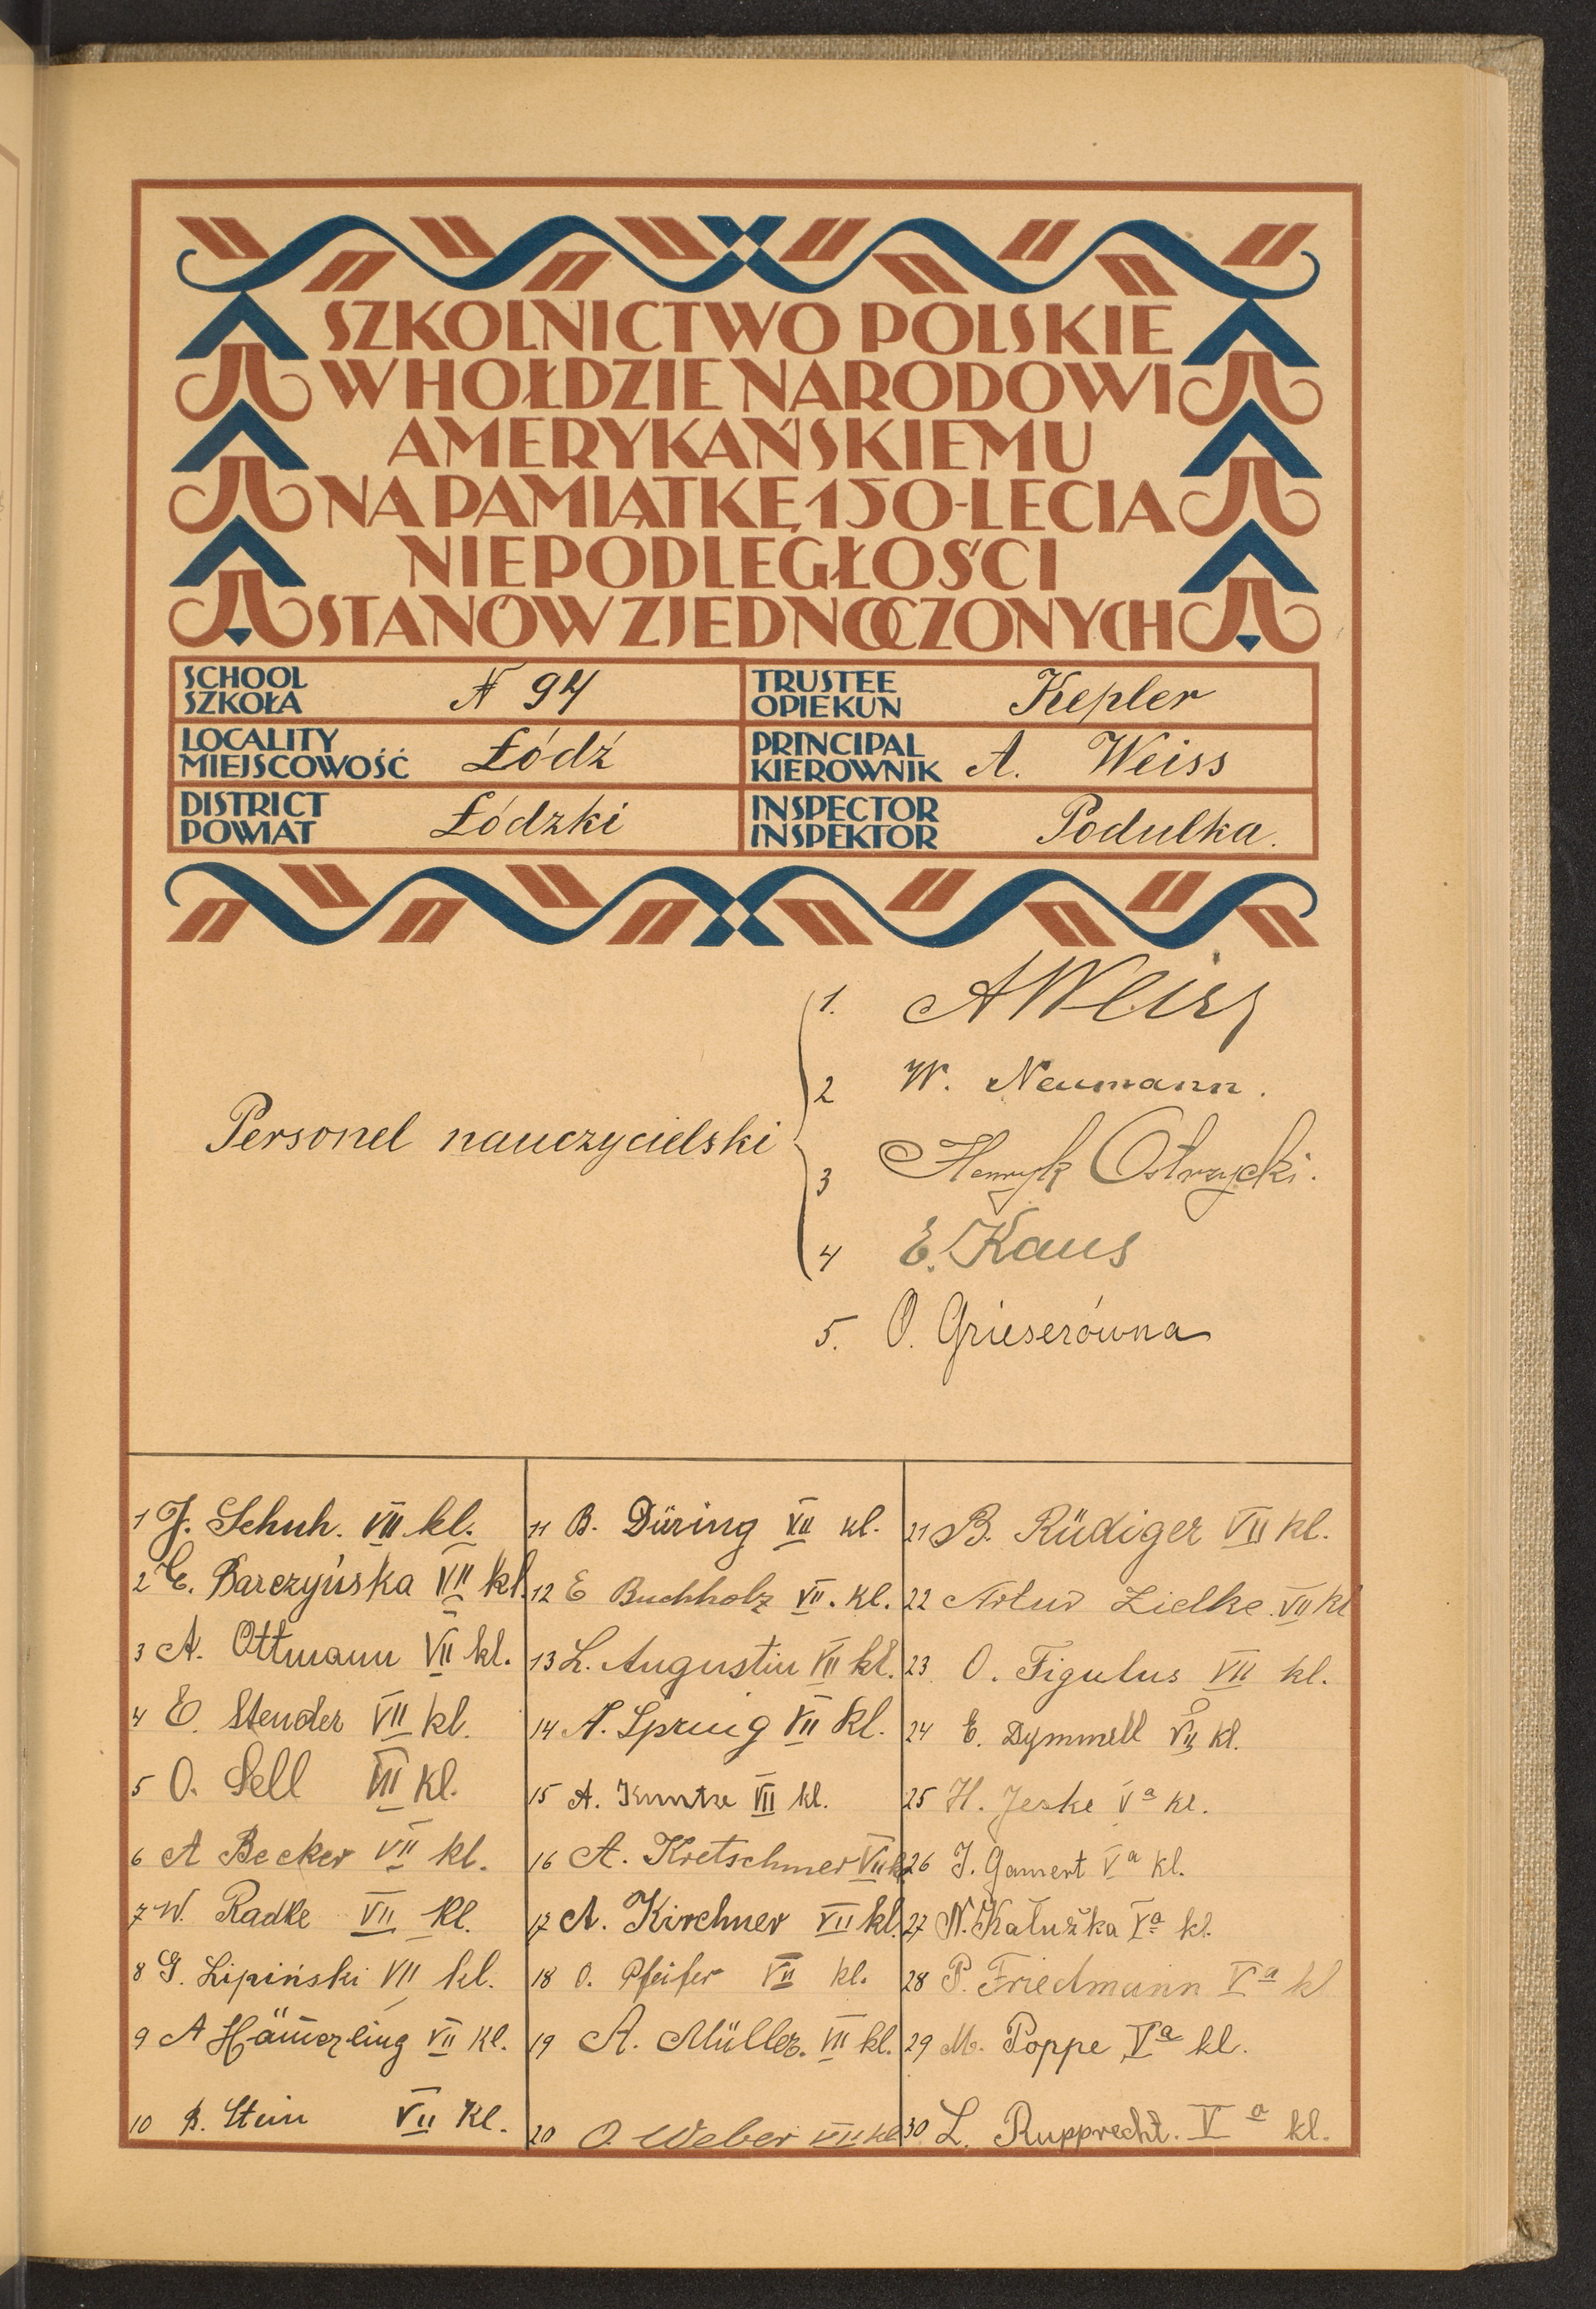 SZKOLNICTWO POLSKIE
W HOŁDZIE NARODOWI
AMERYKAŃSKIEMU
NA PAMIĄTKĘ 150-LECIA
NIEPODLEGŁOŚCI
STANÓW ZJEDNOCZONYCH
SCHOOL
SZKOŁA
N 94
TRUSTEE
OPIEKUN
Kepler
LOCALITY
MIEJSCOWOŚĆ
Łódź
PRINCIPAL
KIEROWNIK
A. Weiss
DISTRICT
POWIAT
Łódzki
INSPECTOR
INSPEKTOR
Podulka.
Personel nauczycielski
1. A Weiss
2 W. Neumann.
3 Henryk Ostrzycki.
4 E. Kaus
5. O. Grieserówna
1 J. Schuh. VII kl.
2 E. Barczyńska VII kl.
3 A. Ottmann VII kl.
4 E. Stender VII kl.
5 O. Sell VII kl.
6 A Becker VII kl.
7 W. Radke VII Kl.
8 G. Lipiński VII kl.
9 A Hämerling VII Kl.
10 B. Stein VII Kl.
11 B. Düring VII kl.
12 E Buchholz VII. Kl.
13 L. Augustin VII kl.
14 A. Spruig VII Kl.
15 A. Kuntze VII kl.
16 A. Kretschmer VII k
17 A. Kirchner VII kl.
18 O. Pfeifer VII kl.
19 A. Müller. VII kl.
20 O. Weber VII kl
21 B. Rüdiger VII kl.
22 Artur Zielke. VII kl
23 O. Figulus VII kl.
24 E. Dymmell VII kl.
25 H. Jeske Va kl.
26 J. Gamert Va kl.
27 N. Kałużka Va kl.
28 P. Friedmann Va kl
29 M. Poppe Va kl.
30 L. Rupprecht. Va kl.